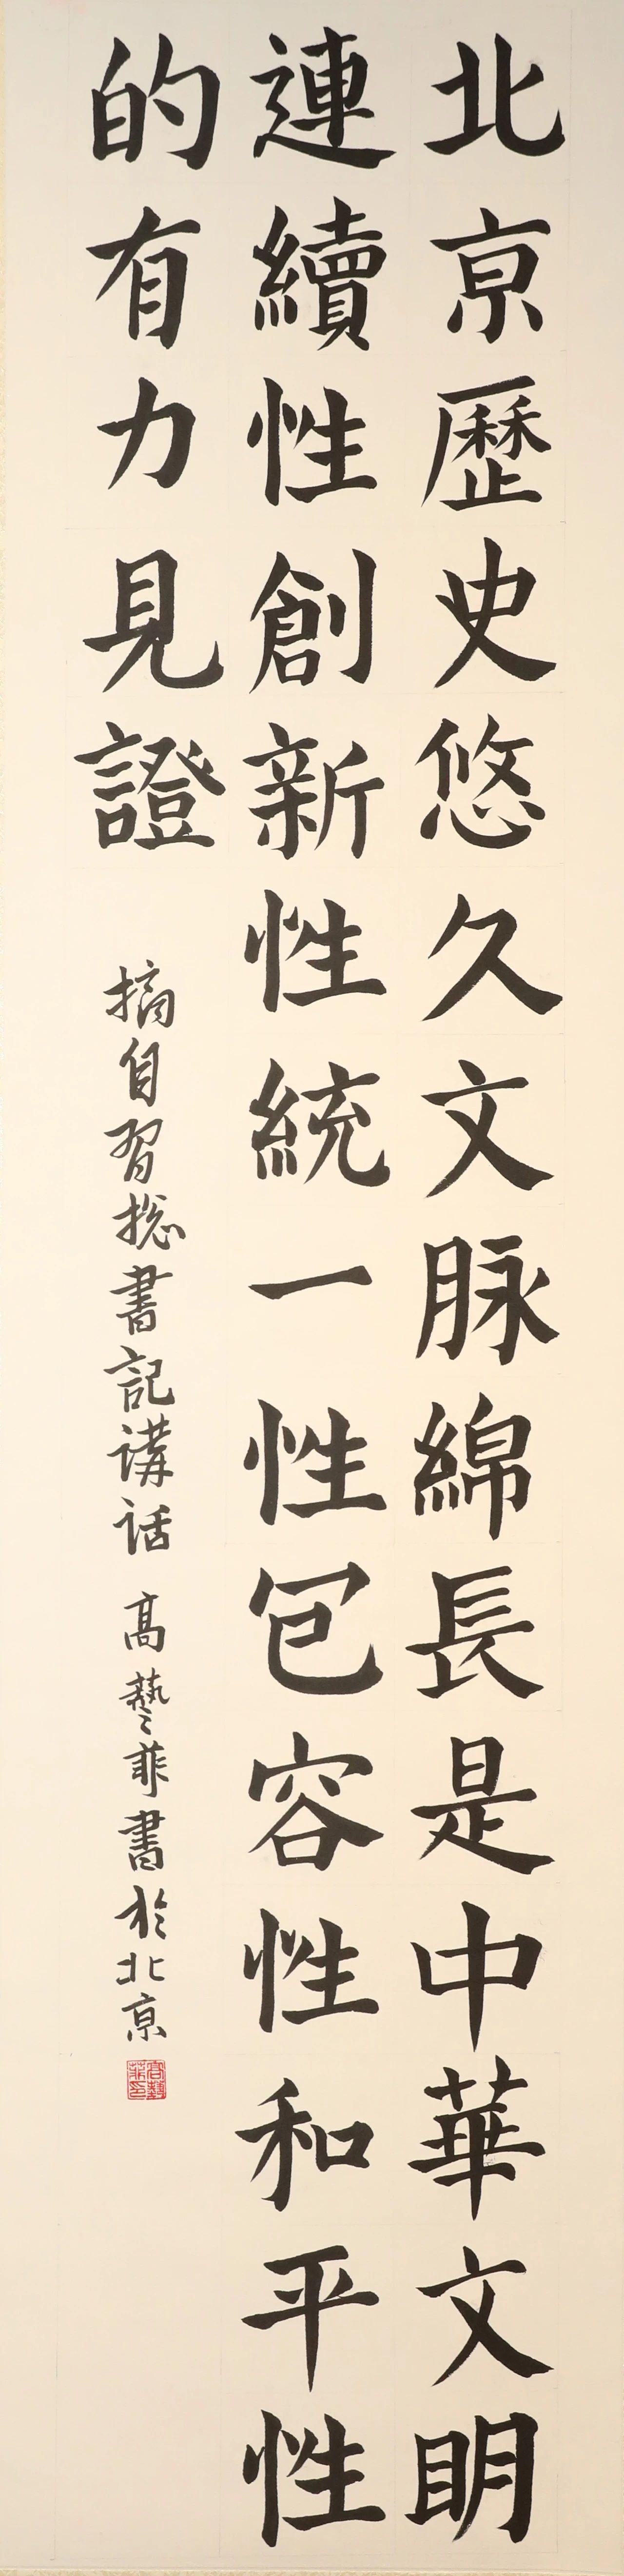 北京歷史悠久文脉綿長是中華文明
連續性創新性統一性包容性和平性
的有力見證
摘自習總書記講話 高藝菲書於北京
高藝菲印